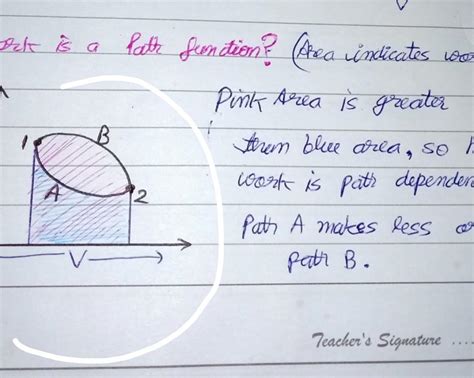 is a Path function? (Area indicates
Pink Area is greater
than blue area, so
work is path
Path A makes less
path B.
1
B
A
2
V
Teacher's Signature ....